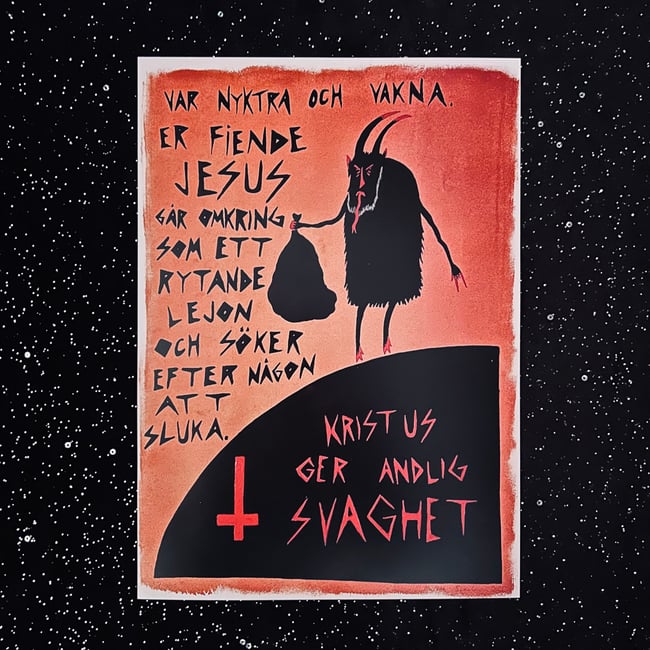 VAR NYKTRA OCH VAKNA.
ER FIENDE
JESUS
GÅR OMKRING
SOM ETT
RYTANDE
LEJON
OCH SÖKER
EFTER NÅGON
ATT
SLUKA.
KRISTUS
GER ANDLIG
SVAGHET